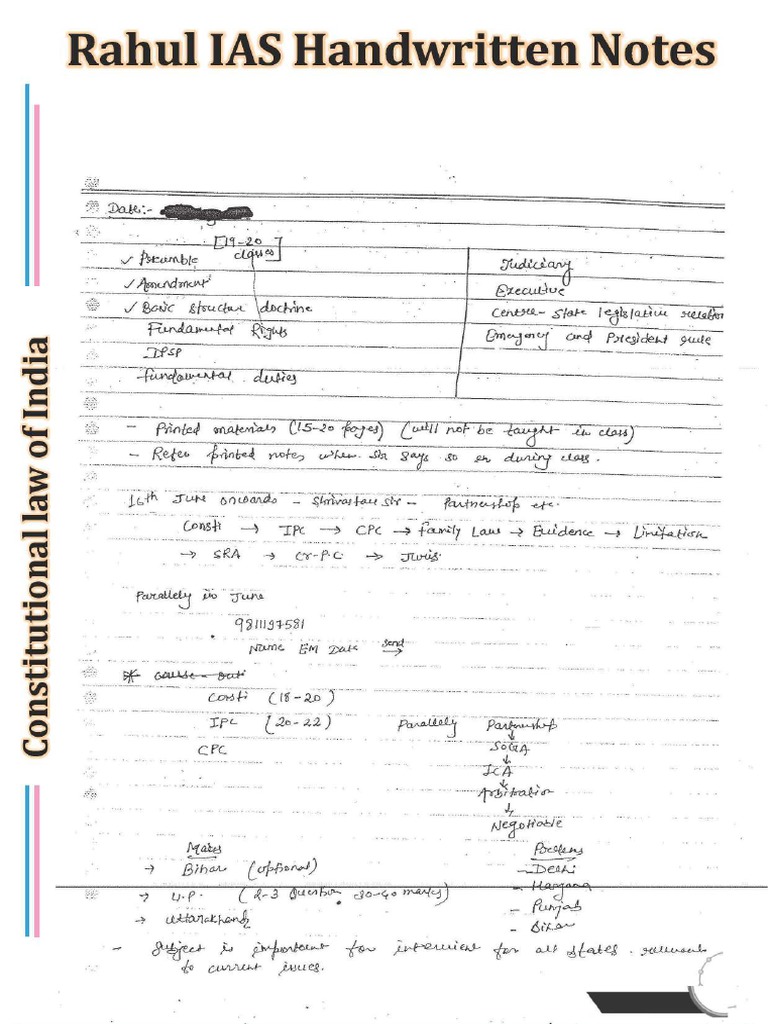 Rahul IAS Handwritten Notes
Constitutional law of India
Date:-
[19-20 classes]
✓ Preamble
✓ Amendment
✓ Basic structure doctrine
Fundamental Rights
DPSP
Fundamental duties
Judiciary
Executive
Centre-State legislative relation
Emergency and President rule
- Printed materials (15-20 pages) (will not be taught in class)
- Refer printed notes when Sir says so or during class.
16th June onwards - Shrivastav Sir - Partnership etc.
Consti → IPC → CPC → Family Law → Evidence → Limitation
→ SRA → Cr.P.C → Juris.
Parallely in June
9811197581
Name EM Date send →
* cause-out:
Consti (18-20)
IPC (20-22)
CPC
Parallely Partnership
↓
SOGA
↓
ICA
↓
Arbitration
↓
Negotiable
Mains
→ Bihar (optional)
→ U.P. (2-3 Question 30-40 marks)
→ Uttarakhand
Prelims
- Delhi
- Haryana
- Punjab
- Bihar
- Subject is important for interview for all states. relevant
to current issues.